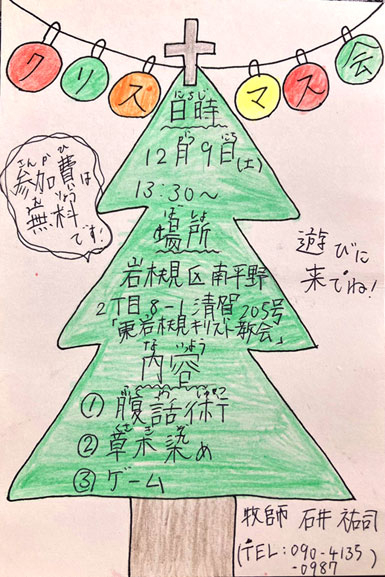 クリスマス会
日時
にちじ
12月9日(土)
がつ にち ど
13:30〜
場所
ばしょ
岩槻区南平野
2丁目8-1清賀205号
「東岩槻キリスト教会」
内容
ないよう
①腹話術
ふくわじゅつ
②草木染め
くさきぞ
③ゲーム
参加費は
さんかひ
無料
むりょう
です!
遊びに
来てね!
牧師 石井祐司
(TEL:090-4135
-0987)